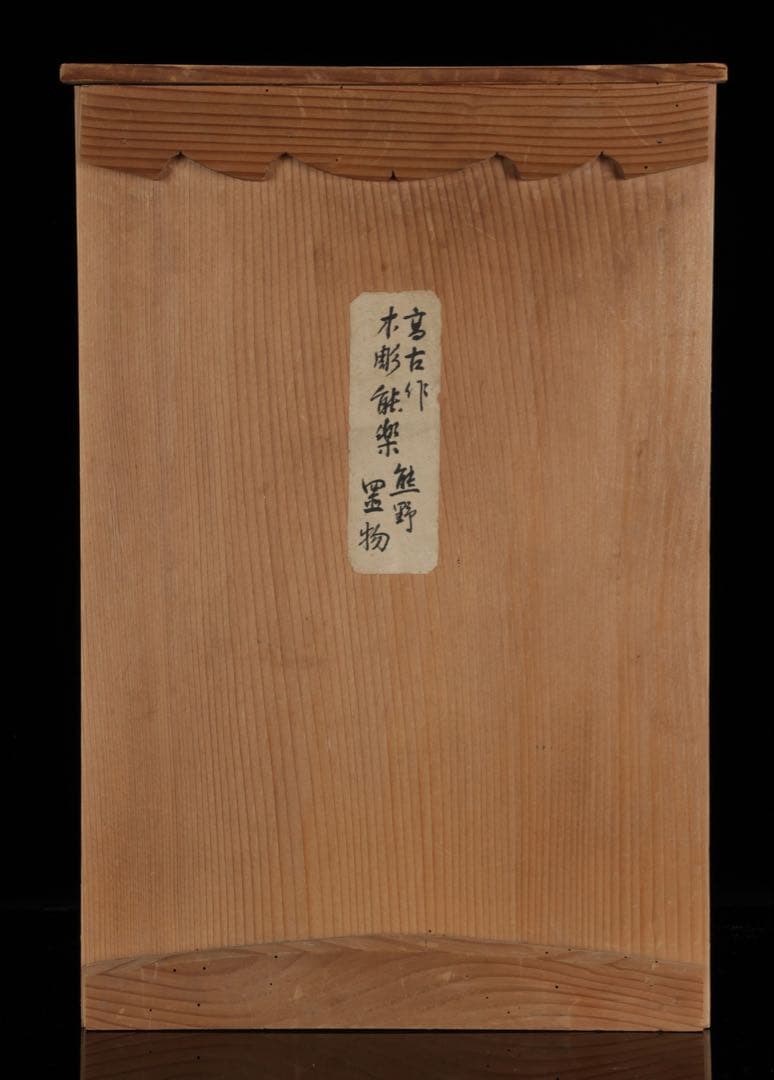 高古作
木彫能楽
熊野
置物